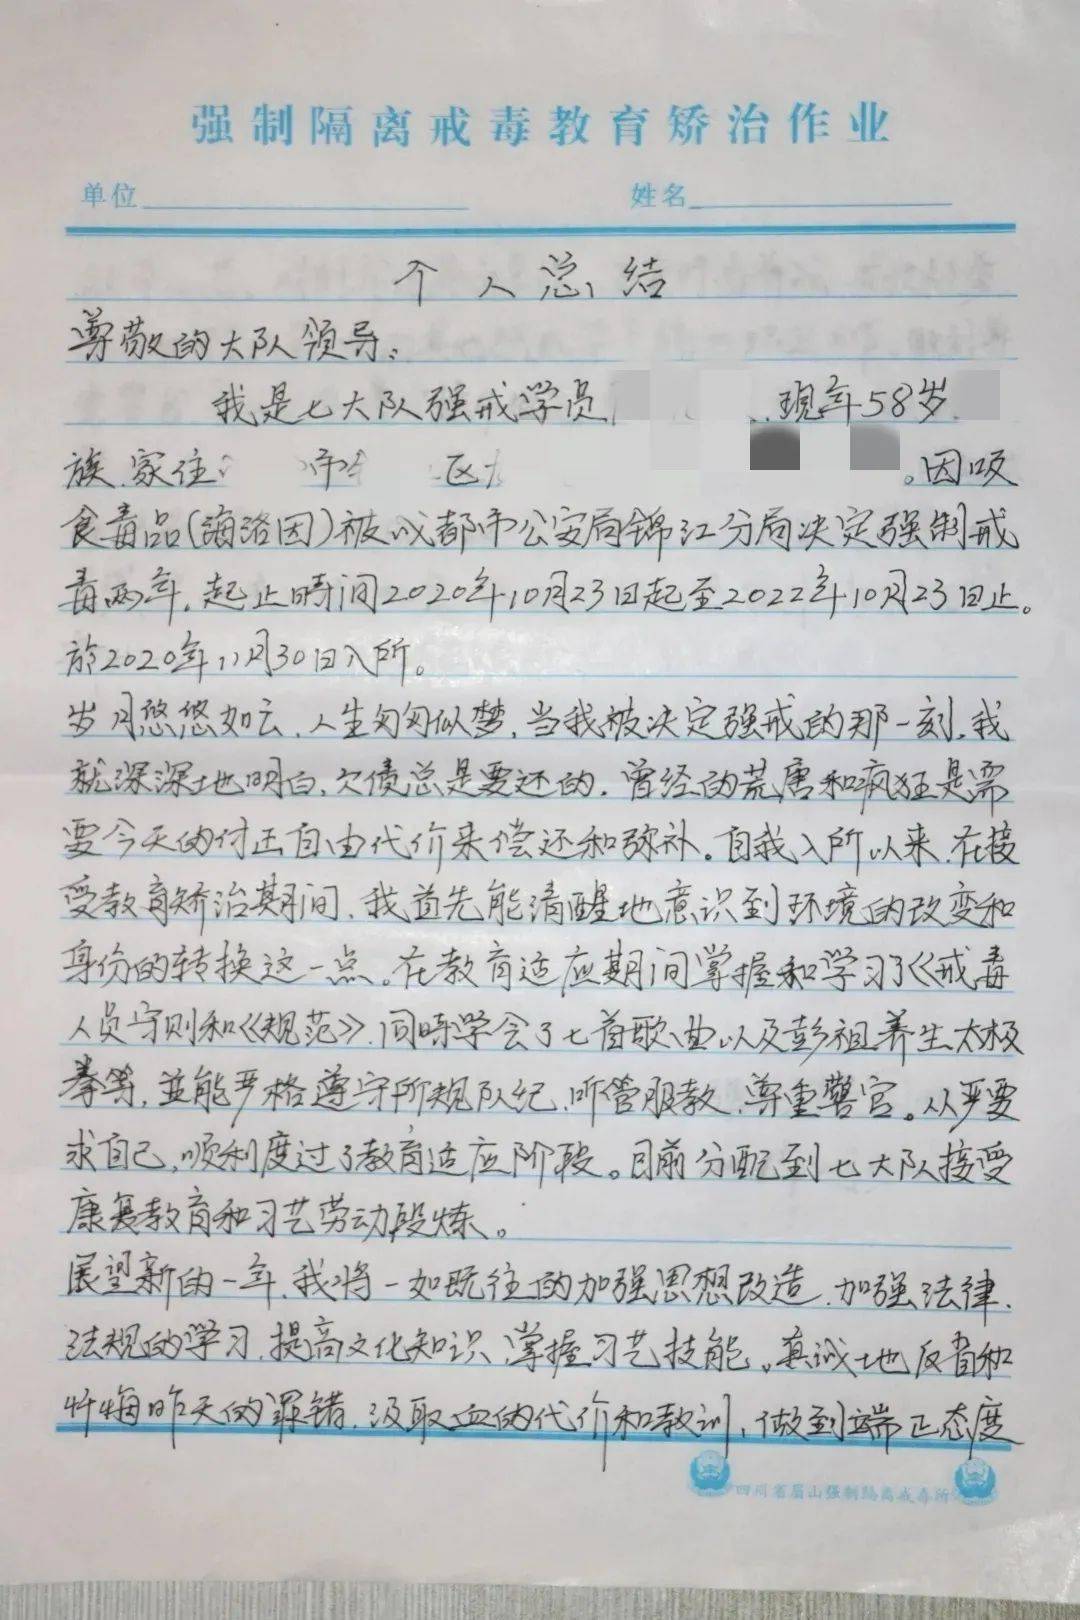 强制隔离戒毒教育矫治作业
单位 姓名
个人总结
尊敬的大队领导:
我是七大队强戒学员 现年58岁.
族.家住 市 区 。因吸
食毒品(海洛因)被成都市公安局锦江分局决定强制戒
毒两年,起止時间2020年10月23日起至2022年10月23日止。
於2020年11月30日入所。
岁月悠悠如云,人生匆匆似梦,当我被决定强戒的那一刻,我
就深深地明白,欠债总是要还的,曾经的荒唐和疯狂是需
要今天的付出自由代价来偿还和弥补。自我入所以来,在接
受教育矫治期间,我首先能清醒地意识到环境的改变和
身份的转换这一点。在教育适应期间掌握和学习了《戒毒
人员守则和《规范》,同時学会了七首歌曲以及彭祖养生太极
拳等,並能严格遵守所规队纪,听管服教,尊重警官。从严要
求自己,顺利度过了教育适应阶段。目前分配到七大队接受
康复教育和习艺劳动段炼。
展望新的一年,我将一如既往的加强思想改造,加强法律、
法规的学习,提高文化知识,掌握习艺技能。真诚地反省和
忏悔昨天的罪错,汲取血的代价和教训,做到端正态度
四川省眉山强制隔离戒毒所